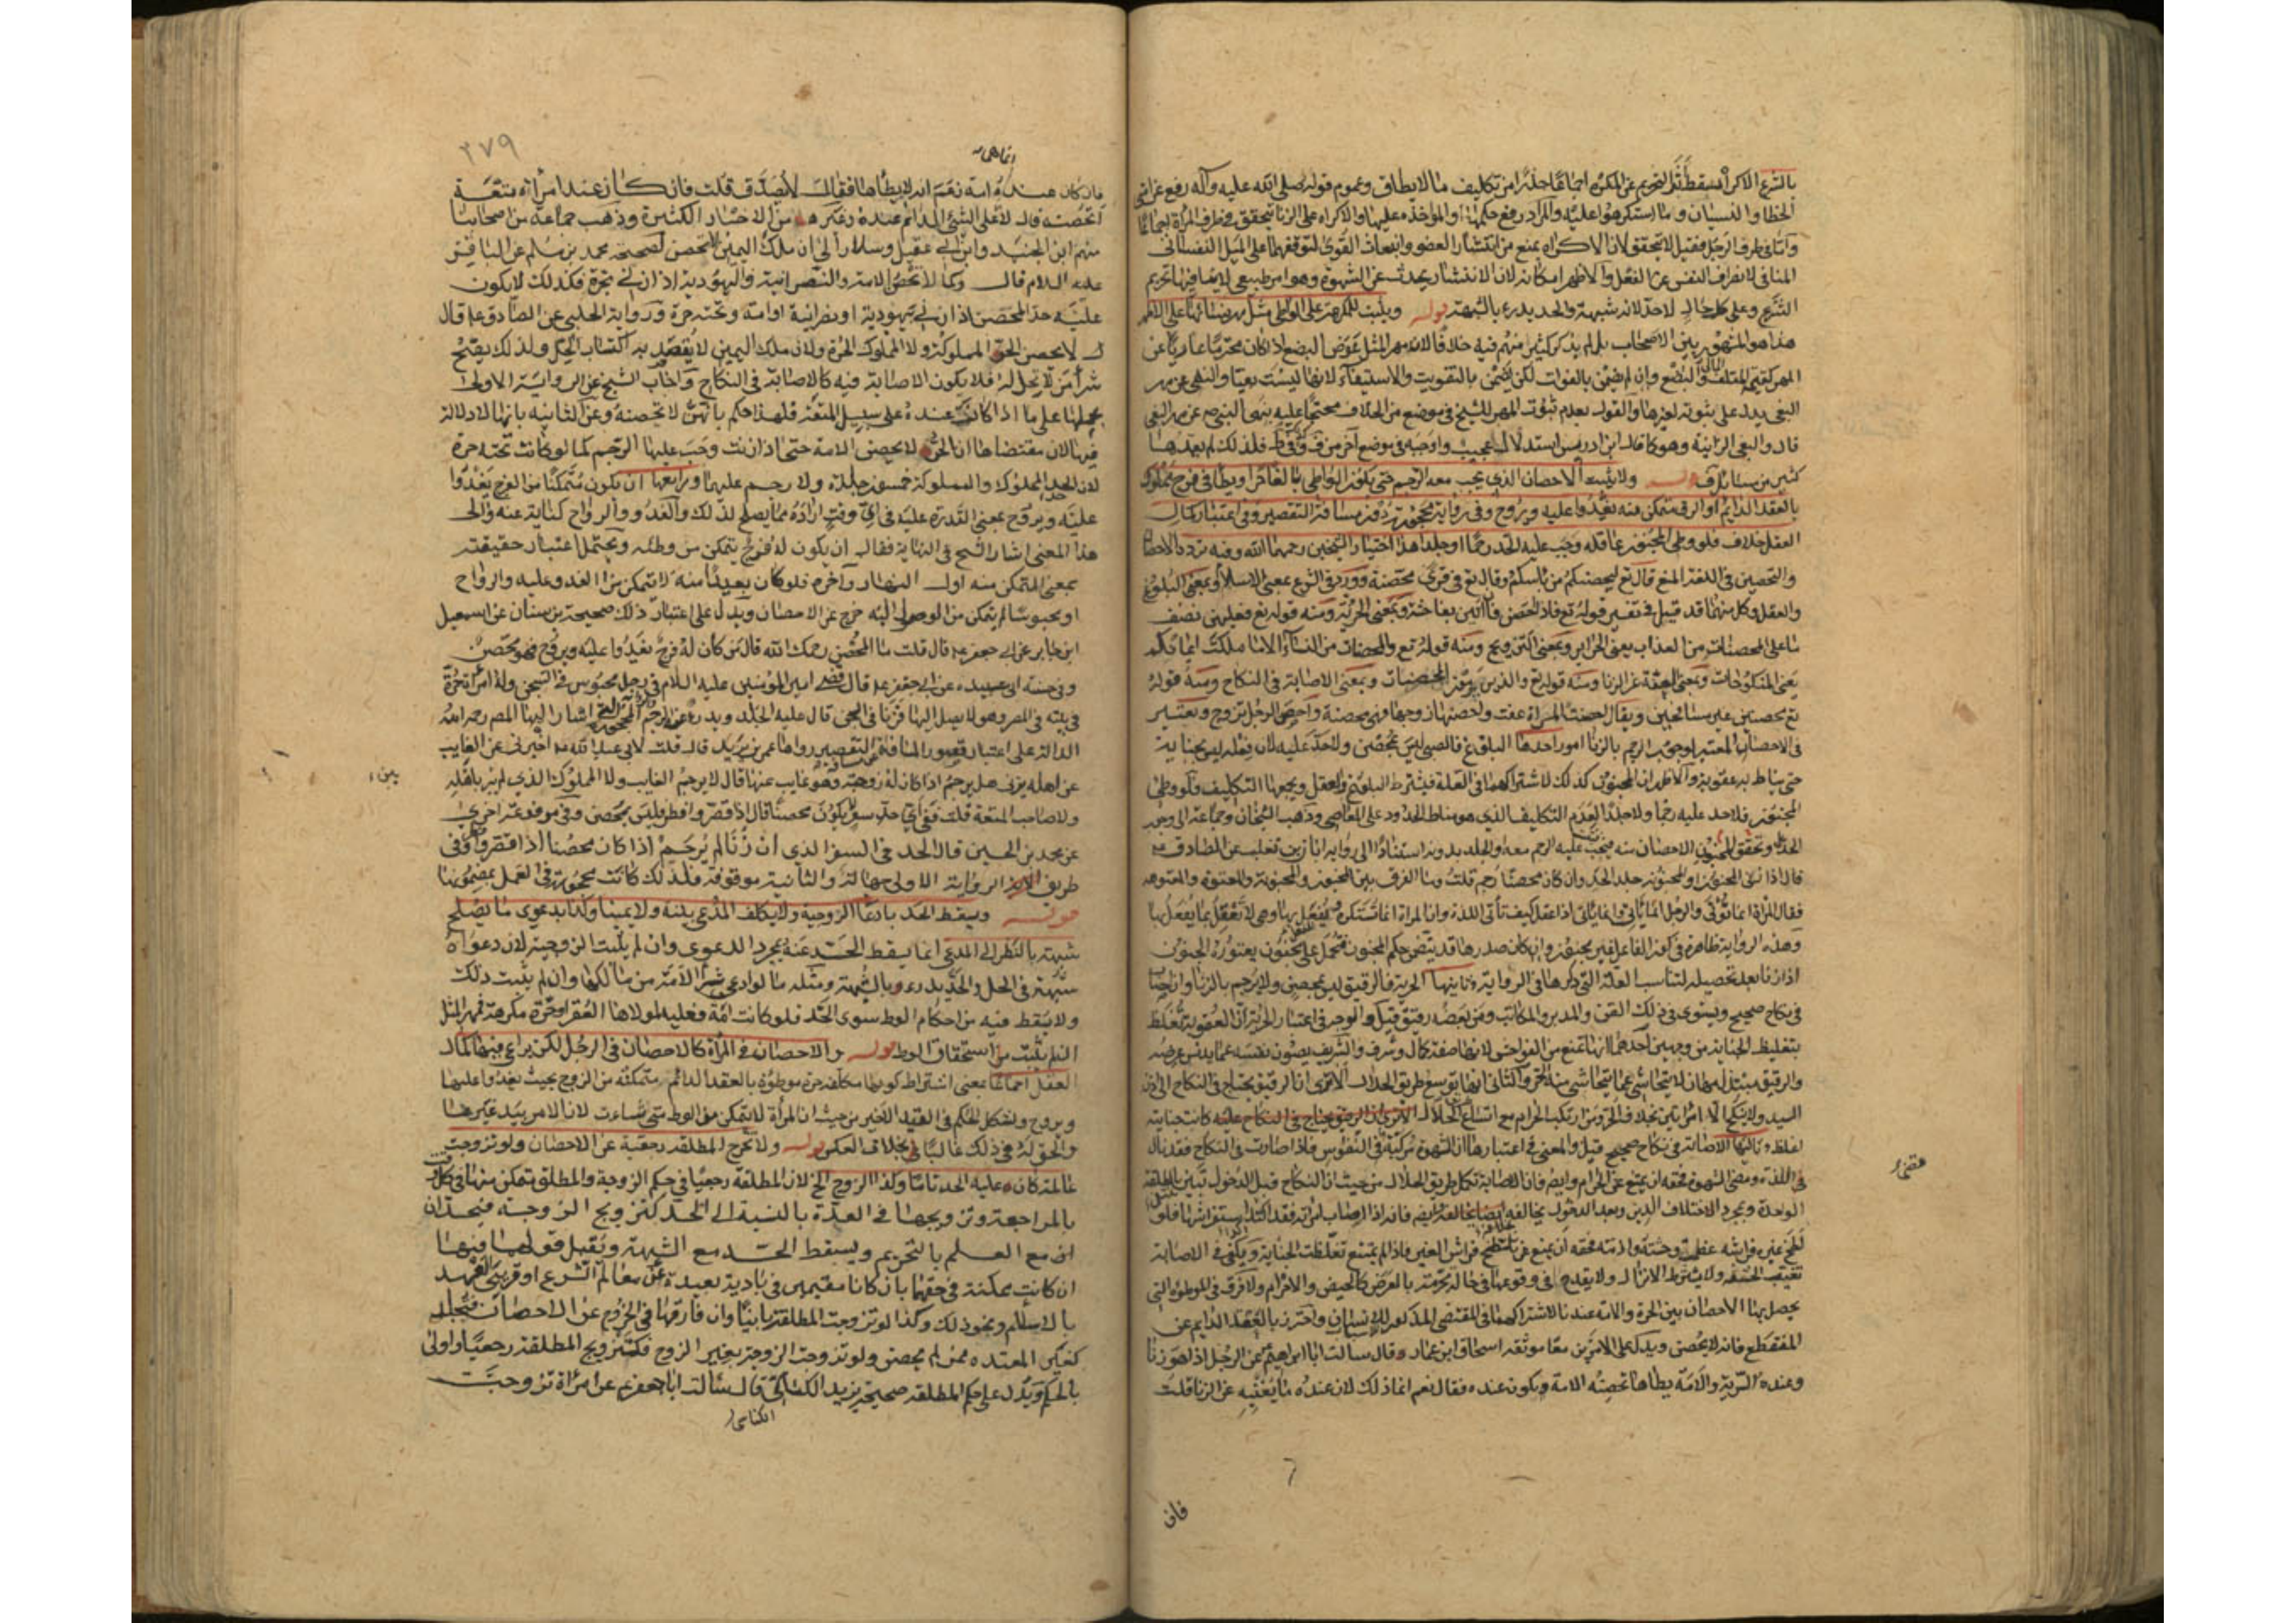 بالشرع الاكراه يسقط أثر التحريم عن المكره اجماعا حذرا من تكليف ما لا يطاق وعموم قوله صلى الله عليه وآله رفع عن امتي
الخطا والنسيان وما استكرهوا عليه والمراد رفع حكمها او المؤاخذه عليها والاكراه على الزنا يتحقق في طرف المرأة اجماعا
وامّا في طرف الرجل فقيل لا يتحقق لان الاكراه يمنع من انتشار العضو وانبعاث القوى لتوقفهما على الميل النفسانى
المنافى لانصراف النفس عن الفعل والاظهر امكانه لان الانتشار يحدث عن الشهوة وهو امر طبيعى لا ينافيها تحريم
الشرع وعلى كل حال لا حد لانه شبهة والحد يدرء بالشبهة قوله ويثبت للمكرهة على الواطى مثل مهر نسائها على الاظهر
هذا هو المشهور بين الاصحاب بل لم يذكر كثير منهم فيه خلافا لان مهر المثل عوض البضع اذا كان محترما عاريا عن
المهر كقيمة المتلف والبضع وان لم يضمن بالفوات لكن يضمن بالتفويت والاستيفاء لانها ليست بغيا والنهى عن مهر
البغى يدل على ثبوته لغيرها والقول بعدم ثبوت المهر للشيخ في موضع من الخلاف محتجا عليه بنهى النبى ص عن مهر البغى
قال والبغى الزانية وهو كما قال ابن ادريس استدلال عجيب واوجبه في موضع آخر من ف وفى ط فلذلك لم يعدها
كثير من مسائل ف قوله ولا يثبت الاحصان الذى يجب معه الرجم حتى يكون الواطى بالغا حرا ويطأ في فرج مملوك
بالعقد الدائم او الرق متمكن منه يغدوا عليه ويروح وفى رواية مهجورة دون مسافة التقصير وفى اعتبار كمال
العقل خلاف فلو وطى المجنون عاقلة وجب عليه الحد رجما او جلدا هذا اختيار الشيخين رحمهما الله وفيه تردد الاحصان
والتحصين في اللغة المنع قال تع لتحصنكم من بأسكم وقال تع في قرى محصنة وورد في الشرع بمعنى الاسلام وبمعنى البلوغ
والعقل وكل منهما قد قيل في تفسير قوله تع فاذا احصن فان اتين بفاحشة وبمعنى الحرية ومنه قوله تع فعليهن نصف
ما على المحصنات من العذاب يعنى الحراير وبمعنى التزويج ومنه قوله تع والمحصنات من النساء الا ما ملكت ايمانكم
يعنى المنكوحات وبمعنى العفة عن الزنا ومنه قوله تع والذين يرمون المحصنات وبمعنى الاصابة في النكاح ومنه قوله
تع محصنين غير مسافحين ويقال احصنت المراة عفت واحصنها زوجها فهى محصنة واحصن الرجل تزوج ويعتبر
في الاحصان المعتبر لوجوب الرجم بالزنا امور احدها البلوغ فالصبى ليس بمحصن ولا حد عليه لان فعله ليس بجناية
حتى يناط به عقوبة والاظهر ان المجنون كذلك لاشتراكهما في العلة فيشترط البلوغ والعقل ويجمعها التكليف فلو وطى
المجنون فلا حد عليه رجما ولا جلدا لعدم التكليف الذى هو مناط الحدود على المعاصى وذهب الشيخان وجماعة الى وجوب
الحد وتحقق الاحصان منه فيجب عليه الرجم معه والجلد بدونه استنادا الى رواية ابان بن تغلب عن الصادق ع
قال اذا زنى المجنون او المعتوه جلد الحد وان كان محصنا رجم قلت وما الفرق بين المجنون والمجنونة والمعتوه والمعتوهة
فقال المرأة انما تؤتى والرجل انما ياتى وانما ياتى اذا عقل كيف تأتى اللذة وان المراة انما تستكره ويفعل بها وهى لا تعقل ما يفعل بها
وهذه الرواية ظاهرة في كون الفاعل غير مجنون وان كان صدرها قد يتضمن حكم المجنون فتحمل على مجنون يعتوره الجنون
اذا زنا بعد تحصيله لتناسب العلة التى ذكرها في الرواية وثانيها الحرية فالرقيق ليس بمحصن ولا يرجم بالزنا وان اصاب
في نكاح صحيح ويستوى في ذلك القن والمدبر والمكاتب ومن بعضه رقيق قيل والوجه في اعتبار الحرية ان العقوبة تغلظ
بتغليظ الجناية من وجهين احدهما انها تمنع من الفواحش لانها صفة كمال وشرف والشريف يصون نفسه عما يدنس عرضه
والرقيق مبتذل مهان لا يتحاشى عما يتحاشى منه الحر والثانى انها توسع طريق الحلال الا ترى ان الرقيق يحتاج في النكاح الى اذن
السيد ولا ينكح الا امرأتين بخلاف الحر ومن ارتكب الحرام مع اتساع الحلال الا ترى ان الرقيق يحتاج في النكاح عليه كانت جنايته
اغلظ وثالثها الاصابة في نكاح صحيح قيل والمعنى في اعتبارها ان الشهوة مركبة في النفوس فاذا اصاب في النكاح فقد نال
في اللذة وقضى الشهوة فحقه ان يمتنع عن الحرام وايضا فان الاصابة تكمل طريق الحلال من حيث ان النكاح قبل الدخول تبين بالطلقة
الواحدة وبمجرد اختلاف الدين وبعد الدخول بخلافه ايضا فانه اذا اصاب امراته فقد اكد استفراشها فلو
لطخ غيره فراشه عظمت وحشته واذيته فحقه ان يمتنع عن تلطيخ فراش الغير فاذا لم يمتنع تغلظت الجناية ويكفى في الاصابة
تغيب الحشفه ولا يشترط الانزال ولا يقدح في وقوعها في حالة محرمة بالعرض كالحيض والاحرام ولا فرق في الموطوءة التى
يحصل بها الاحصان بين الحرة والامة عندنا لاشتراكهما في المقتضى المذكور للاحصان واحترز بالعقد الدايم عن
المنقطع فانه لا يحصن ويدل على الامرين معا موثقه اسحاق ابن عمار قال سالت ابا ابراهيم عن الرجل اذا هو زنا
وعنده السرية والامة يطأها تحصنه الامة وتكون عنده فقال نعم انما ذلك لان عنده ما يغنيه عن الزنا قلت
فان
٢٧٩
انما هى
فان كان عنده امة زعم انه لا يطأها فقال لا يصدق قلت فان كان عنده امرأة متعة
اتحصنه قال لا على الشئ الدائم عنده وغيرها من الاخبار الكثيرة وذهب جماعة من اصحابنا
منهم ابن الجنيد وابن ابى عقيل وسلار الى ان ملك اليمين لا تحصن لصحيحة محمد بن مسلم عن الباقر
عليه السلام قال وكما لا تحصنه الامة والنصرانية واليهودية اذا زنى بحرة فكذلك لا يكون
عليه حد المحصن اذا زنى بيهودية او نصرانية او امة وتحته حرة ورواية الحلبى عن الصادق ع قال
لا يحصن الحر المملوكة ولا المملوك الحرة ولان ملك اليمين لا يقصد به اكتساب الحل ولذلك يصح
شرا من لا يحل له فلا يكون الاصابة فيه كالاصابة في النكاح واجاب الشيخ عن الرواية الاولى
بحملها على ما اذا كانت عنده على سبيل المتعة فلهذا حكم بانهن لا تحصنه وعن الثانيه بانها لا دلالة
فيها لان مقتضاها ان الحر لا يحصن الامة حتى اذا زنت وجب عليها الرجم كما لو كانت تحته حرة
لان حد المملوك والمملوكة خمسون جلدة ولا رجم عليهما ورابعها ان يكون متمكنا من الفرج يغدوا
عليه ويروح بمعنى القدرة عليه في اى وقت اراده مما يصلح لذلك والغدو والرواح كناية عنه والى
هذا المعنى اشار الشيخ في النهاية فقال ان يكون له فرج يتمكن من وطئه ويحتمل اعتبار حقيقته
بمعنى المتمكن منه اول النهار وآخره فلو كان بعيدا منه لا يتمكن من الغدو عليه والرواح
او محبوسا لم يتمكن من الوصول اليه خرج عن الاحصان ويدل على اعتبار ذلك صحيحة بن سنان عن اسمعيل
ابن جابر عن ابى جعفر ع قال قلت ما المحصن رحمك الله قال من كان له فرج يغدوا عليه ويروح فهو محصن
وفى حسنة ابى عبيده عن ابى جعفر ع قال قضى امير المؤمنين عليه السلام في رجل محبوس في السجن وله امرأة حرة
في بيته في المصر وهو لا يصل اليها فزنا في السجن قال عليه الجلد ويدرء عنه الرجم والرواية المهجورة التى اشار اليها المصر رحمه الله
الدالة على اعتبار قصور المسافة عن مسافة التقصير رواها عمر بن يزيد قال قلت لابى عبد الله ع اخبرنى عن الغايب
عن اهله يزنى هل يرجم اذا كان له زوجة وهو غايب عنها قال لا يرجم الغايب ولا المملوك الذى لم يبن باهله
ولا صاحب المتعة قلت ففى اى حد سفر لا يكون محصنا قال اذا قصر وافطر فليس بمحصن وفى مرفوعة اخرى
عن محمد بن الحسين قال الحد في السفر الذى ان زنا لم يرجم اذا كان محصنا اذا قصر وافطر وفى
طريق الرواية الاولى جهالة والثانية موقوفة فلذلك كانت مهجورة في العمل بمضمونها
قوله ويسقط الحد بادعاء الزوجية ولا يكلف المدعى بينة ولا يمينا وكذا بدعوى ما يصلح
شبهة بالنظر الى المدعى انما يسقط الحد عنه بمجرد الدعوى وان لم يثبت الزوجية لان دعواه
شبهة في الحل والحد يدرء بالشبهة ومثله ما لو ادعى شراء الامة من مالكها وان لم يثبت ذلك
ولا يسقط فيه من احكام الوطى سوى الحد فلو كانت امة فعليه لمولاها العقر او حرة مكرهة فمهر المثل
ان لم يثبت استحقاق الوطى قوله والاحصان في المرأة كالاحصان في الرجل لكن يراعى فيها كمال
العقل اجماعا بمعنى اشتراط كونها مكلفة حرة موطوءة بالعقد الدائم متمكنة من الزوج بحيث يغدوا عليها
ويروح ويشكل الحكم في القيد الاخير من حيث ان المرأة لا تتمكن من الوطى متى شاءت لان الامر بيد غيرها
والحق له في ذلك غالبا بخلاف العكس قوله ولا تخرج المطلقه رجعية عن الاحصان ولو تزوجت
عالمة كان عليه الحد تاما وكذا الزوج الخ لان المطلقة رجعيا في حكم الزوجة والمطلق متمكن منها في كل وقت
بالمراجعة وتزويجها في العدة بالنسبة الى الحد كتزويج الزوجة فيحدان
ان مع العلم بالتحريم ويسقط الحد مع الشبهة ويقبل قولهما فيها
ان كانت ممكنة في حقهما بان كانا مقيمين في بادية بعيدة عن معالم الشرع او قريبى العهد
بالاسلام ونحو ذلك وكذا لو تزوجت المطلقة باينا وان فارقها في الخروج عن الاحصان فتجلد
كغير المعتده ممن لم يحصن ولو تزوجت الزوجة بغير الزوج فكتزويج المطلقة رجعيا واولى
بالحكم ويدل على حكم المطلقه صحيحة يزيد الكناسى قال سالت ابا جعفر ع عن امرأة تزوجت
الكناسى